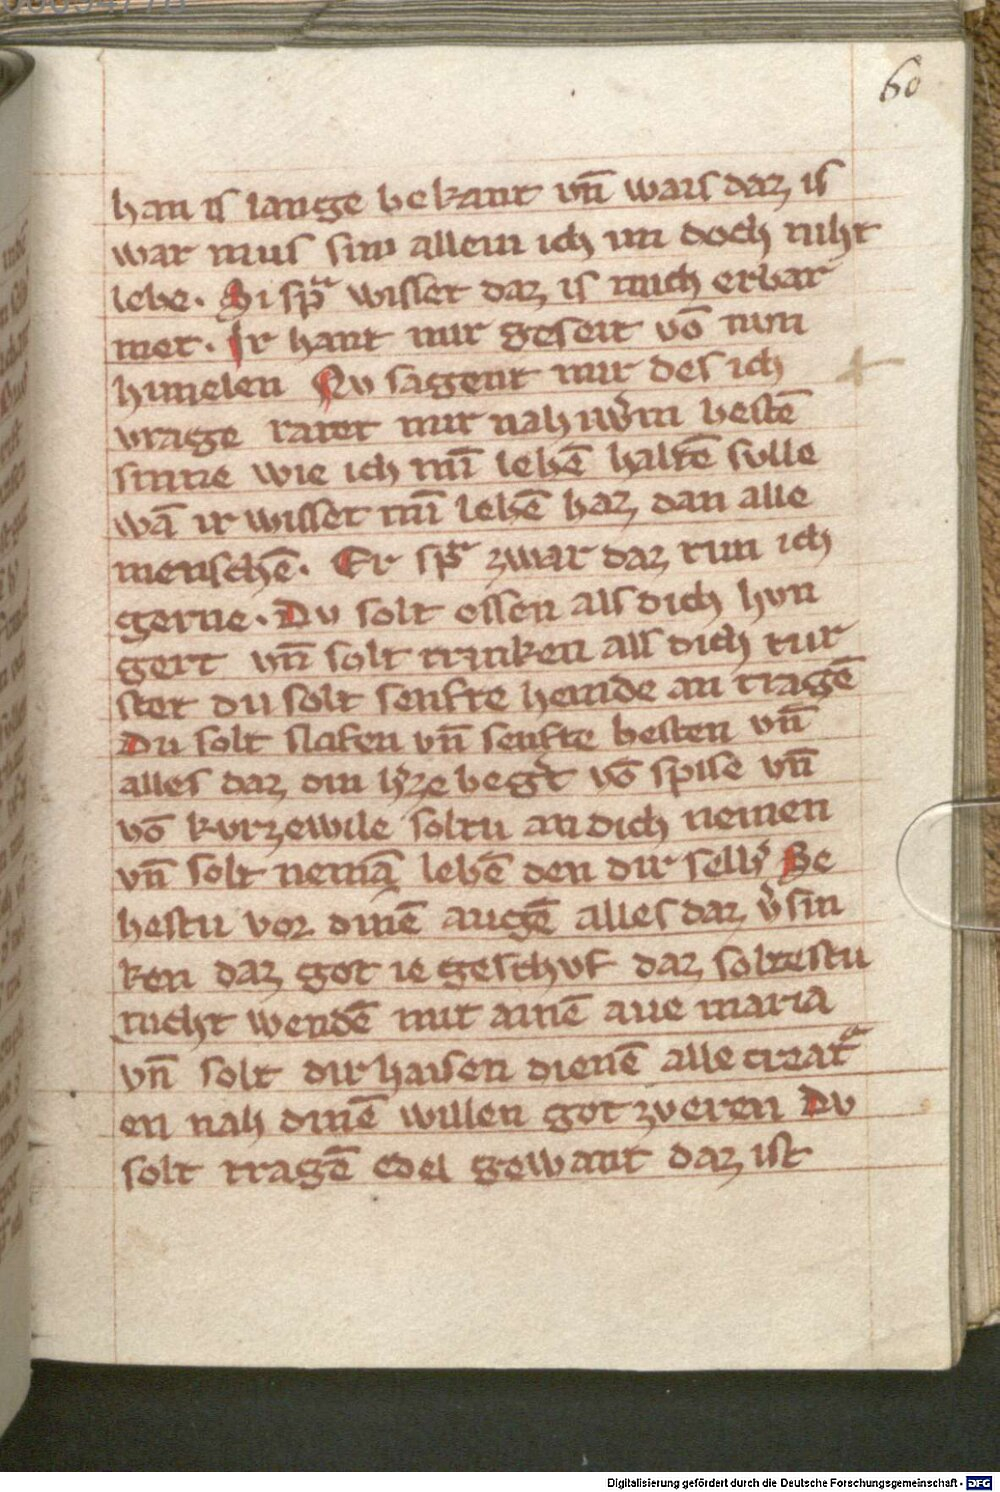 60
han is lange bekant vn̄ wais daz is
war mus sin allein ich im doch niht
lebe. Si spͣ wisset daz is mich erbar
met. Ir hant mir geseit vō nun
himelen Nv sagent mir des ich
vrage ratet mir nah iuw̓m bestē
sinne wie ich mī lebē haltē sulle
wā ir wisset mī lebē baz dan alle
menschē. Er spͣ zwar daz tun ich
gerne. Du solt essen als dich hvn
gert vn̄ solt trinken als dich tur
stet du solt senfte hemde an tragē
Du solt slafen vn̄ senfte betten vn̄
alles daz din h̓ze beg̓t vō spise vn̄
vō kvrzewile soltu an dich nemen
vn̄ solt nemā lebē den dir selb̓ Se
hestu vor dinē augē alles daz v̓sin
ken daz got ie geschvf daz soltestu
nicht wendē mit ainē aue maria
vn̄ solt dir haisen dienē alle creatͣ
en nah dinē willen got zv eren Dv
solt tragē edel gewant daz ist
Digitalisierung gefördert durch die Deutsche Forschungsgemeinschaft - DFG